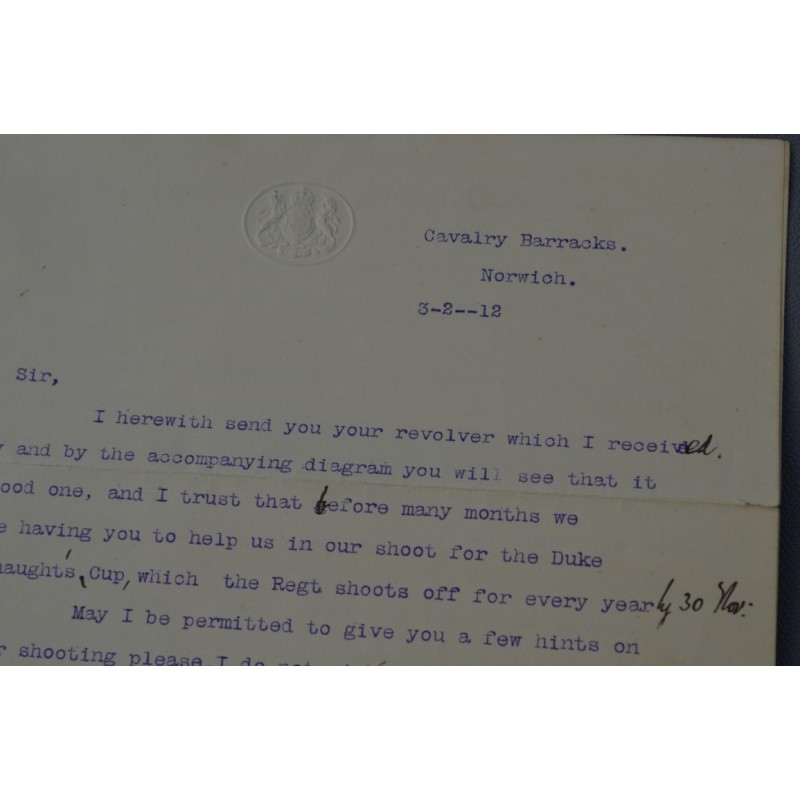 Cavalry Barracks.
Norwich.
3-2--12
Sir,
I herewith send you your revolver which I received.
and by the accompanying diagram you will see that it
ood one, and I trust that before many months we
e having you to help us in our shoot for the Duke
naught's Cup, which the Regt shoots off for every year by 30 Nov:
May I be permitted to give you a few hints on
r shooting please I do not